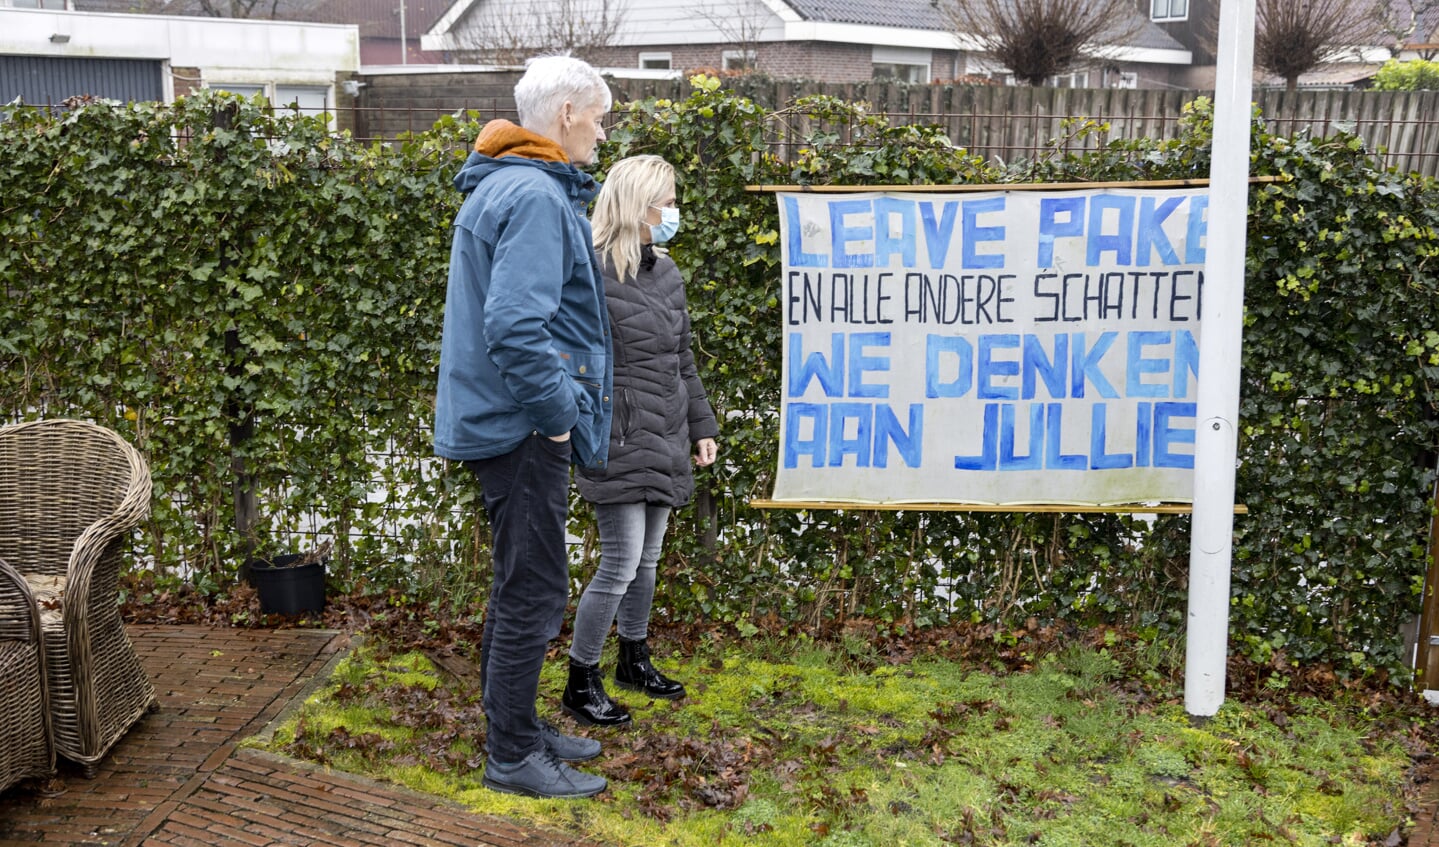 LEAVE PAKE
EN ALLE ANDERE SCHATTEN
WE DENKEN
AAN JULLIE